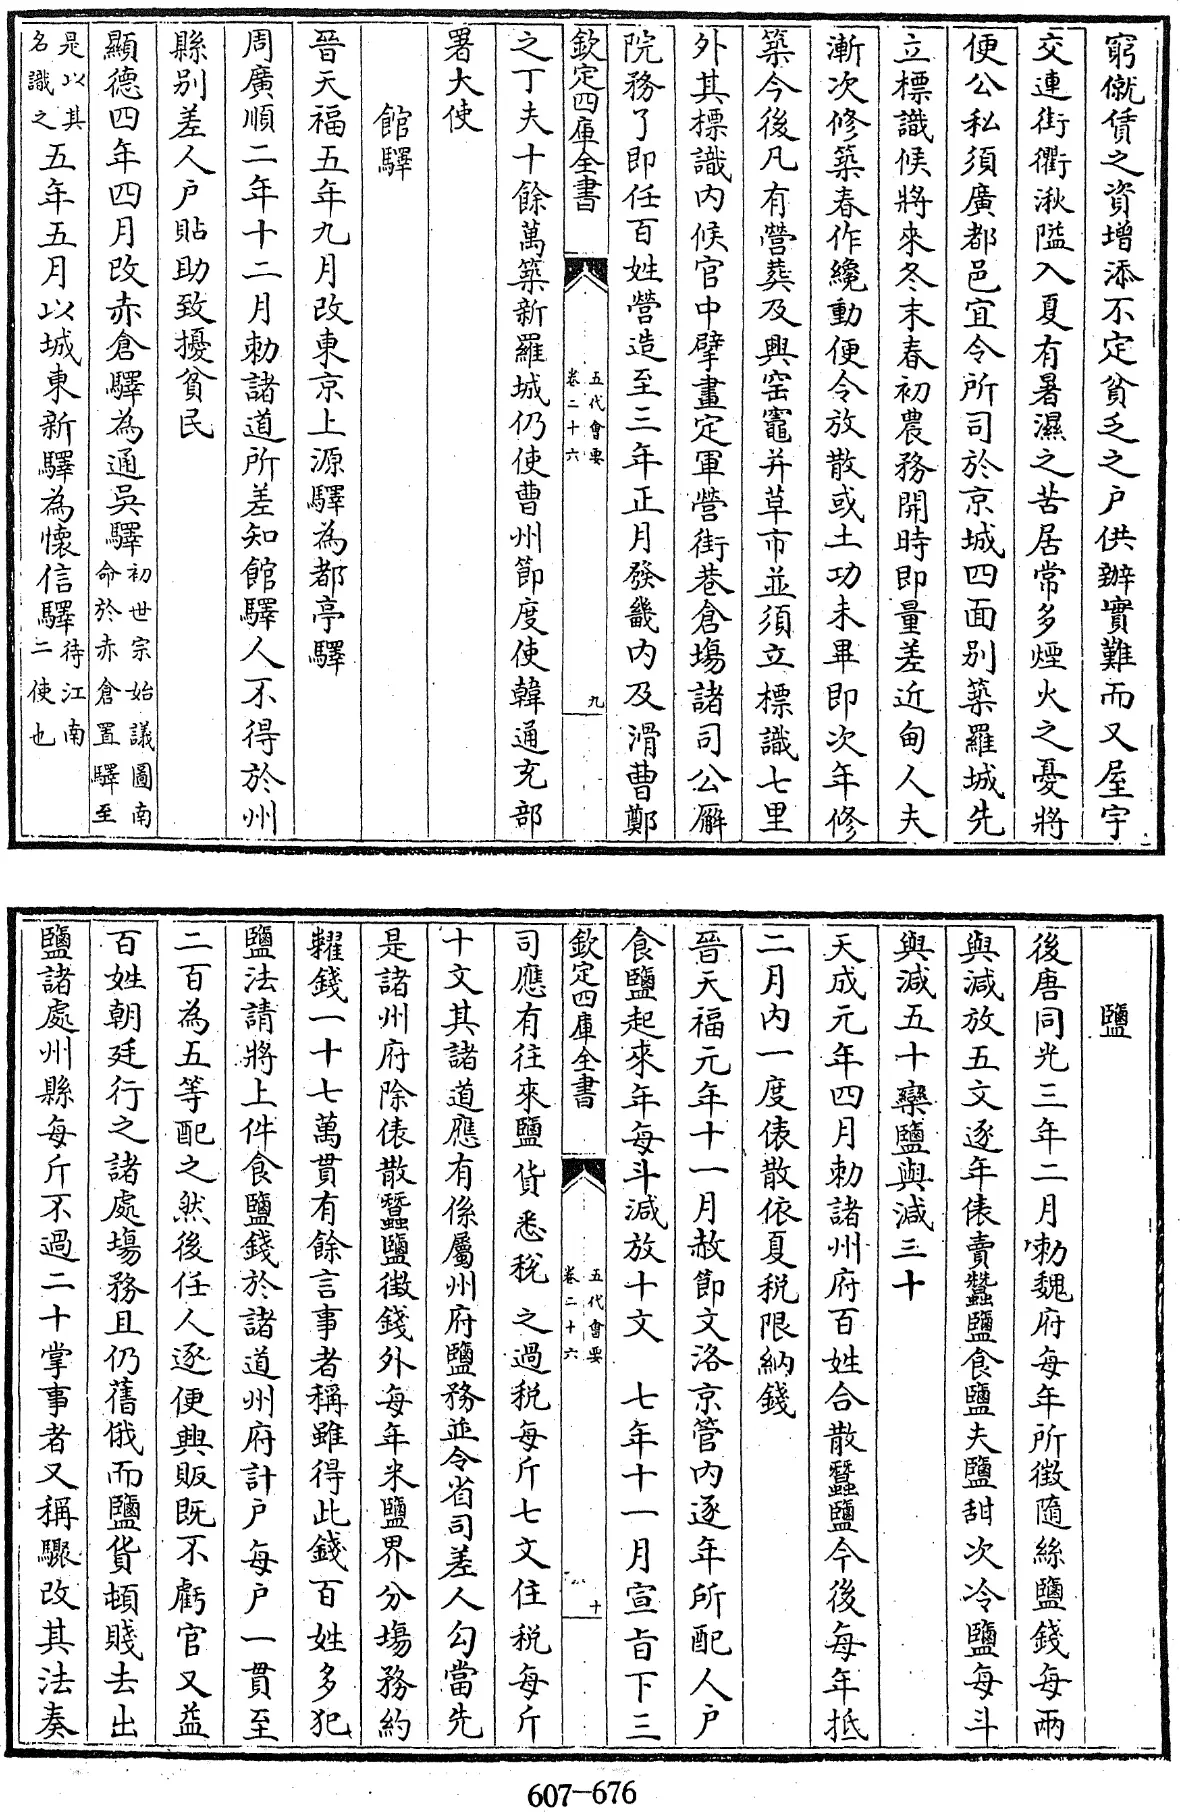 窮僦賃之資增添不定貧乏之户供辦實難而又屋宇
交連街衢湫隘入夏有暑濕之苦居常多煙火之憂將
便公私須廣都邑宜令所司於京城四面别築羅城先
立標識候將來冬末春初農務閒時即量差近甸人夫
漸次修築春作纔動便令放散或土功未畢即次年修
築今後凡有營葬及興窑竈并草市並須立標識七里
外其標識内候官中擘畫定軍營街巷倉塲諸司公廨
院務了即任百姓營造至三年正月發畿内及滑曹鄭
欽定四庫全書
五代會要
卷二十六
九
之丁夫十餘萬築新羅城仍使曹州節度使韓通充部
署大使
館驛
晉天福五年九月改東京上源驛為都亭驛
周廣順二年十二月勅諸道所差知館驛人不得於州
縣别差人户貼助致擾貧民
顯德四年四月改赤倉驛為通吳驛初世宗始議圖南命於赤倉置驛至
是以其名識之五年五月以城東新驛為懷信驛待江南二使也
鹽
後唐同光三年二月勅魏府每年所徵隨絲鹽錢每兩
與減放五文逐年俵賣蠶鹽食鹽夫鹽甜次冷鹽每斗
與減五十欒鹽與減三十
天成元年四月勅諸州府百姓合散蠶鹽今後每年抵
二月内一度俵散依夏税限納錢
晉天福元年十一月赦節文洛京管内逐年所配人户
食鹽起來年每斗減放十文 七年十一月宣旨下三
欽定四庫全書
五代會要
卷二十六
十
司應有往來鹽貨悉税之過税每斤七文住税每斤
十文其諸道應有係屬州府鹽務並令省司差人勾當先
是諸州府除俵散蠶鹽徵錢外每年米鹽界分塲務約
糶錢一十七萬貫有餘言事者稱雖得此錢百姓多犯
鹽法請將上件食鹽錢於諸道州府計户每户一貫至
二百為五等配之然後任人逐便興販既不虧官又益
百姓朝廷行之諸處塲務且仍舊俄而鹽貨頓賤去出
鹽諸處州縣每斤不過二十掌事者又稱驟改其法奏
607-676